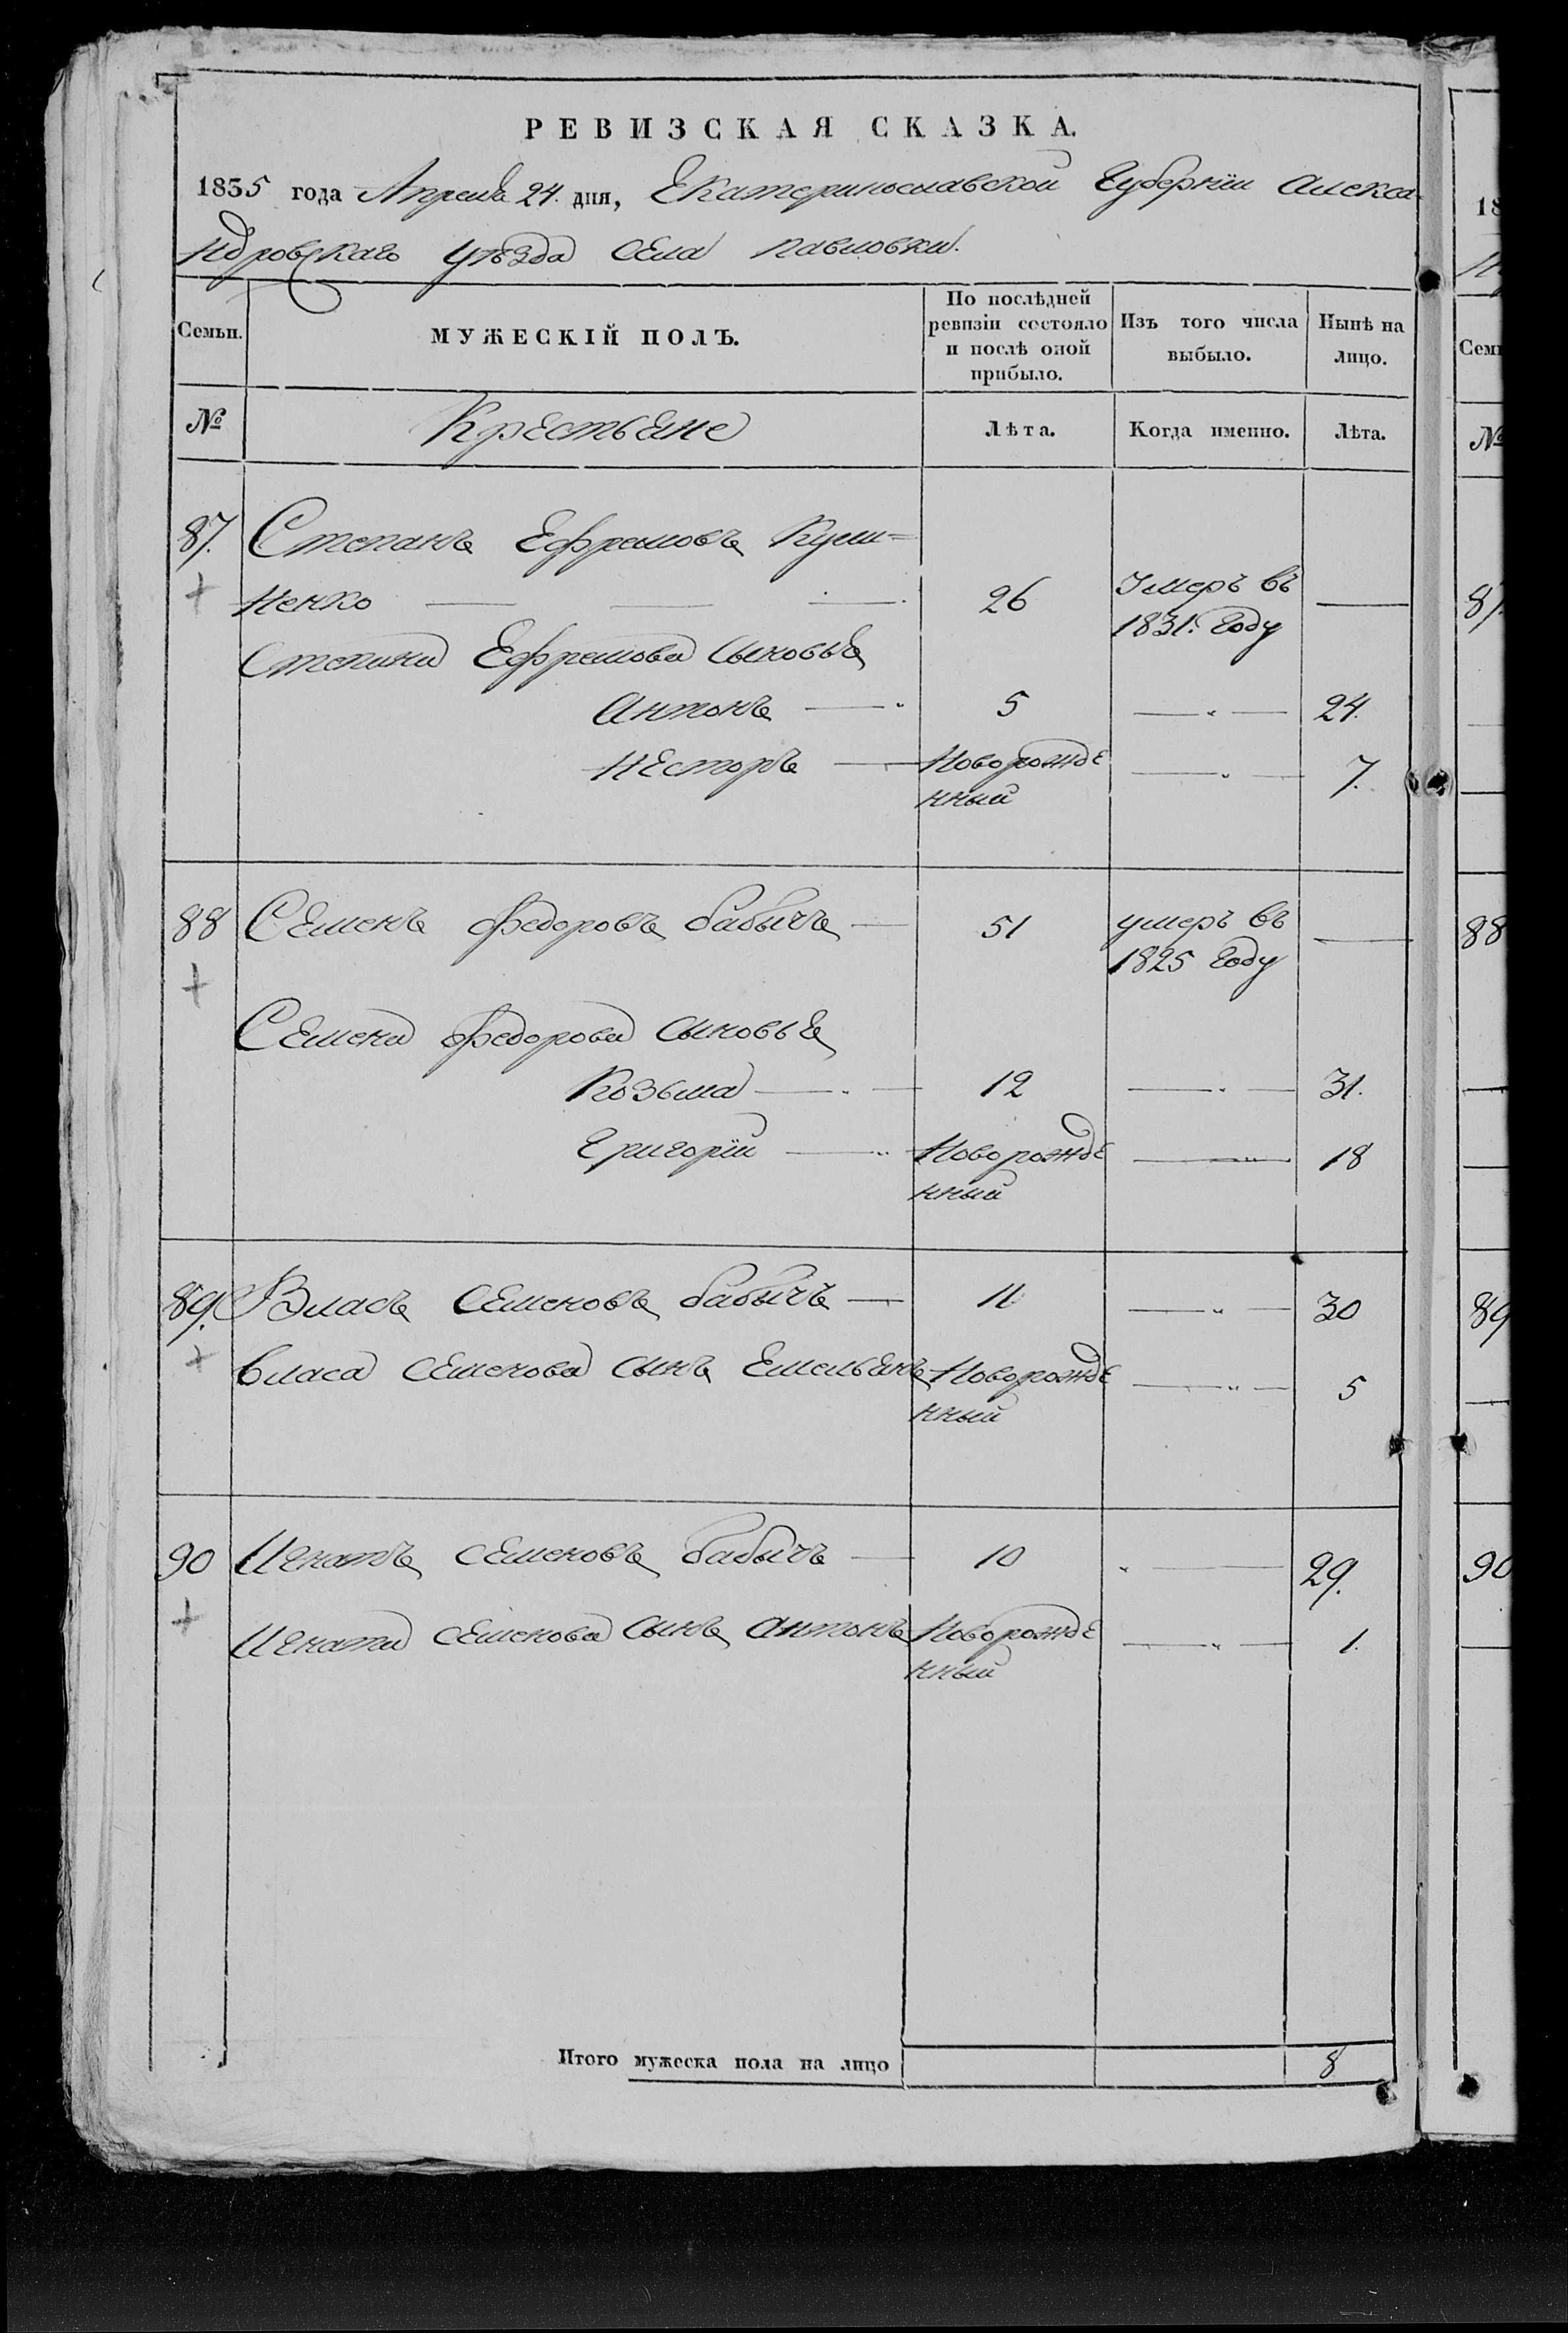 РЕВИЗСКАЯ СКАЗКА.
1835 года Апреля 24. дня, Екатеринославской Губернїи Алекса-
ндровскаго уѣзда Села Павловки.
Семьи. МУЖЕСКІЙ ПОЛЪ. По послѣдней ревизіи состояло и послѣ оной прибыло. Изъ того числа выбыло. Нынѣ на лицо.
№ Крестьяне Лѣта. Когда именно. Лѣта.
87. Степанъ Ефремовъ
ненко — — — 26 Умеръ въ —
1831. Году
Степана Ефремова Сыновья
Антонъ — 5 — " — 24.
Несторъ — Новорожде — " — 7.
нный
88 Семенъ Федоровъ Бабычъ — 51 умеръ въ —
1825 Году
Семена Федорова Сыновья
Козьма — " — 12 — " — 31.
Григорїй — " Новорожде — " — 18
нный
89. Власъ Семеновъ Бабычъ — 11 — " — 30
Власа Семенова Сынъ Емельянъ Новорожде — " — 5
нный
90 Игнатъ Семеновъ Бабычъ — 10 " — 29.
Игната Семенова Сынъ Антонъ Новорожде — " — 1.
нный
Итого мужеска пола на лицо 8
18
Семь
№
87.
88
89
90